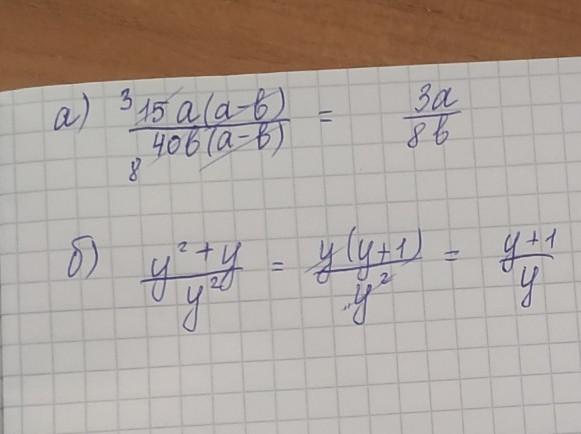 а) ³15a(a-b)/₈40b(a-b) = 3a/8b
б) y²+y/y² = y(y+1)/y² = y+1/y